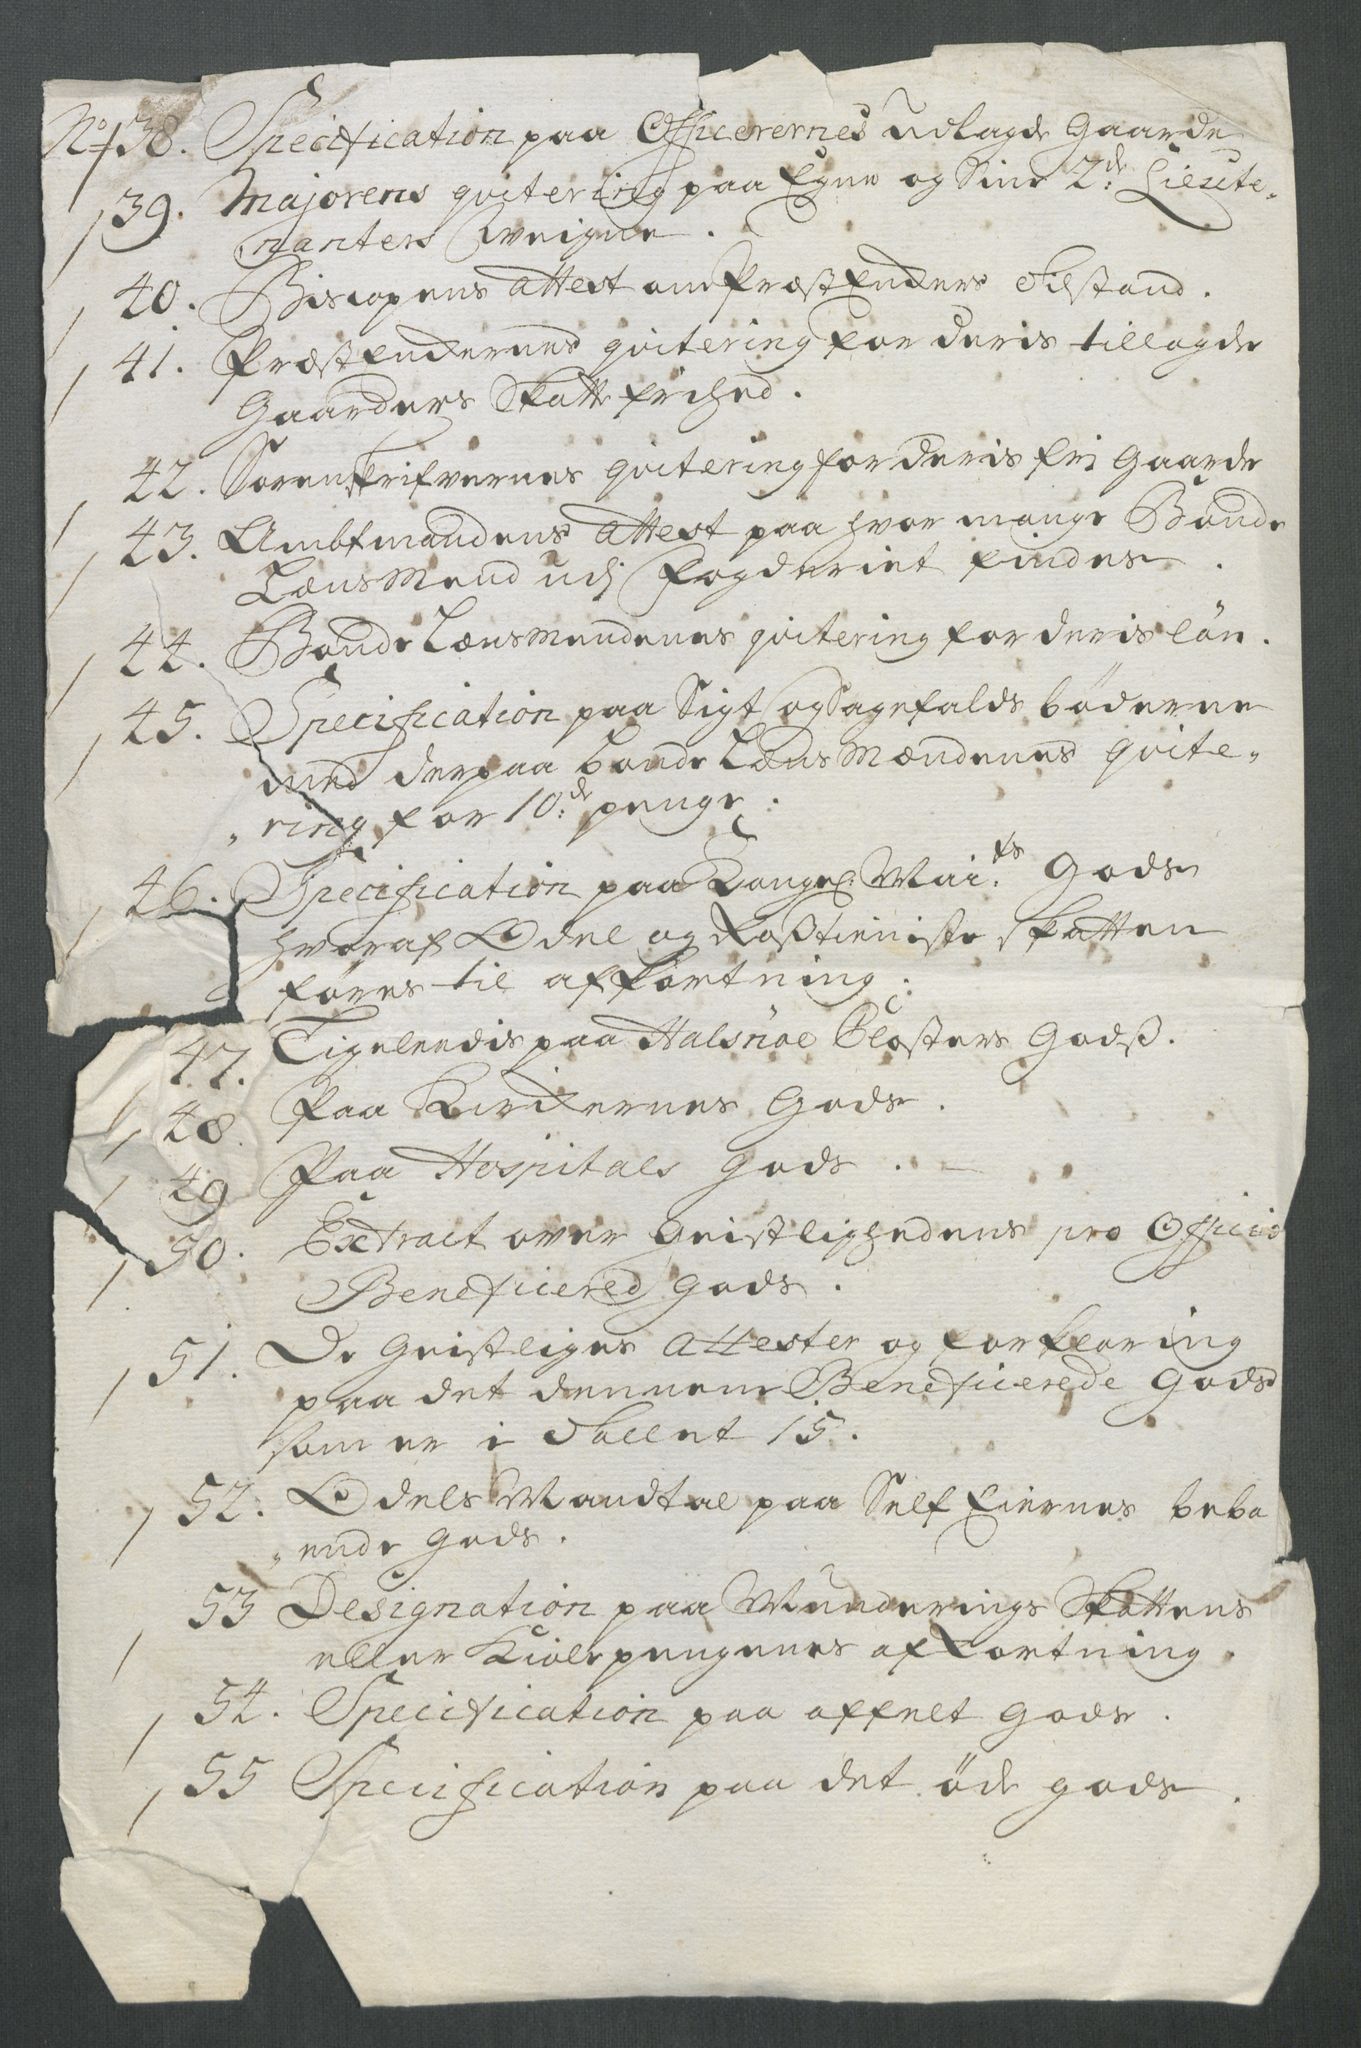 No 38. Specification paa Officerernes Udlagde Gaarde
39. Majorens qvitering paa Egne og Sine 2de Lieute-
nanters Weigne.
40. Biscopens attest om Præst Enchers tilstand.
41. Præst Enchernes qvitering for deris tillagde
Gaarders Skatte frihed.
42. Sorenskrifvernes qvitering for deris fri Gaarde
43. Ambtmandens attest paa hvor mange Bonde
LænsMend udj Fogderiet findes.
44. Bonde Lænsmendenes qvitering for deris lön.
45. Specification paa Sigt og Sagefalds böderne
med derpaa bonde LænsMændenes qvite-
ring for 10de penge.
46. Specification paa Kongel. Mai:ts Gods
hvoraf Odel og Rosztieniste skatten
föres til affkortning.
47. Tigelendis paa Halsnöe Closters Godsz.
48. Paa Kirckernes Gods.
49 Paa Hospitals gods.
50. Extract over Geistlighedens pro Officio
Beneficered gods.
51. De Geistliges attester og forklaring
paa det dennem Beneficerede Gods
som er i Follet 15.
52. Odels Mandtal paa Self Eiernes beboe
ende gods.
53 Designation paa Munderings Skattens
eller Kiolepengenes afkortning.
54. Specification paa affelt gods.
55 Specification paa det öde gods.